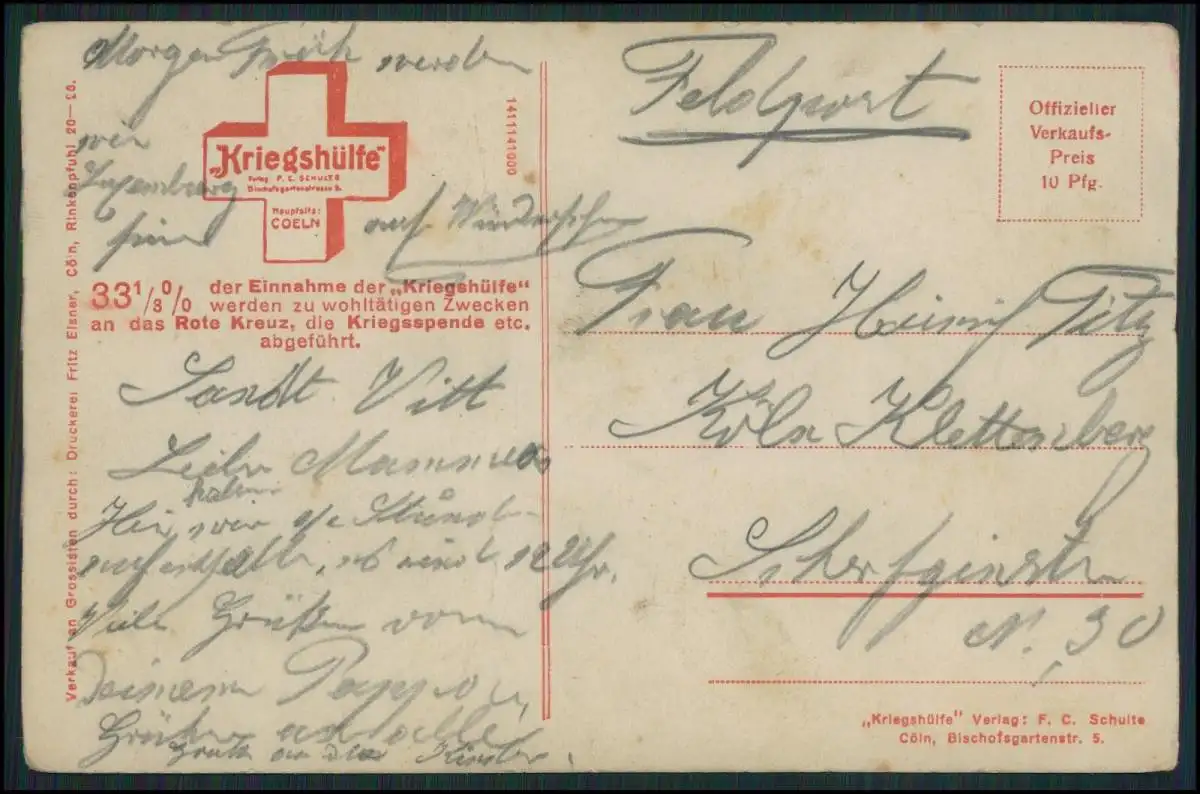 Morgen Früh werden
wir
Luxemburg
sein
auf Wiedersehn
„Kriegshülfe"
Verlag F. C. SCHULTE
Bischofsgartenstrasse 5.
Hauptsitz:
COELN
1411141000
33 1/3 0/0 der Einnahme der „Kriegshülfe"
werden zu wohltätigen Zwecken
an das Rote Kreuz, die Kriegsspende etc.
abgeführt.
Sandt Vitt
Liebe Mamma
haben
Hier wir Stunde
aufenthalt, es wird 12 Uhr.
Viele Grüße vom
Deinem Pappa,
Grüße an alle
Gruß an die Kinder.
Verkauf an Grossisten durch: Druckerei Fritz Elsner, Cöln, Rinkenpfuhl 20—26.
Feldpost
Offizieller
Verkaufs-
Preis
10 Pfg.
Frau Heinrich Titz
Köln Klettenberg
N. 30
„Kriegshülfe" Verlag: F. C. Schulte
Cöln, Bischofsgartenstr. 5.